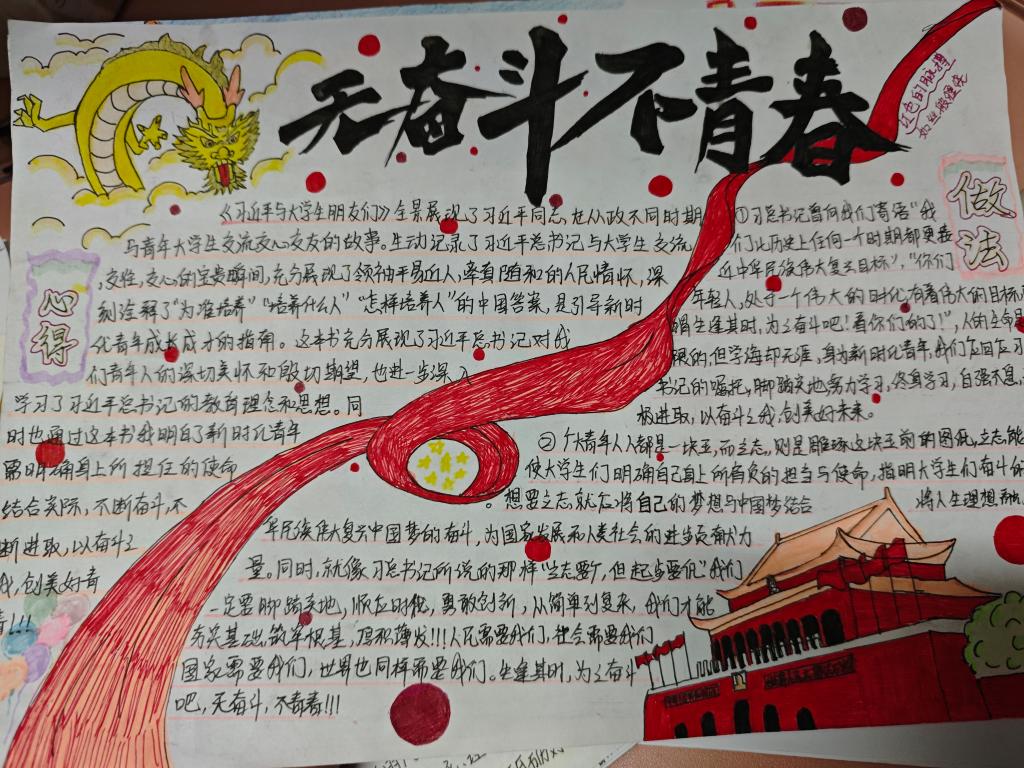 无奋斗不青春
红色的脉搏
心得
《习近平与大学生朋友们》全景展现了习近平同志在从政不同时期
与青年大学生交流交心交友的故事。生动记录了习近平总书记与大学生交流
,交往,交心的宝贵瞬间,充分展现了领袖平易近人,率真随和的人民情怀,深
刻诠释了"为谁培养""培养什么人""怎样培养人"的中国答案,是引导新时
代青年成长成才的指南。这本书充分展现了习近平总书记对我
们青年人的深切关怀和殷切期望,也进一步深入
学习了习近平总书记的教育理念和思想。同
时也通过这本书我明白了新时代青年
需明确身上所担任的使命
结合实际,不断奋斗,不
断进取,以奋斗之
我,创美好青
春!!!
做法
①习总书记曾向我们寄语"我
们比历史上任何一个时期都更接
近中华民族伟大复兴目标","你们
年轻人,处于一个伟大的时代有着伟大的目标
生逢其时,为之奋斗吧!看你们的了!",人的生命是
限的,但学海却无涯,身为新时代青年,我们应回应习
书记的嘱托,脚踏实地努力学习,终身学习,自强不息,
极进取,以奋斗之我,创美好未来。
②个大青年人人都是一块玉,而立志,则是雕琢这块玉前的图纸,立志,能
使大学生们明确自己身上所肩负的担当与使命,指明大学生们奋斗的
。想要立志,就应将自己的梦想与中国梦结合
将人生理想融
华民族伟大复兴中国梦的奋斗,为国家发展和人类社会的进步贡献力
量。同时,就像习总书记所说的那样"立志要,但起步要低"我们
一定要脚踏实地,顺应时代,勇敢创新,从简单到复杂,我们才能
夯实基础,筑牢根基,厚积薄发!!!人民需要我们,社会需要我们
国家需要我们,世界也同样需要我们。生逢其时,为之奋斗
吧,无奋斗,不青春!!!